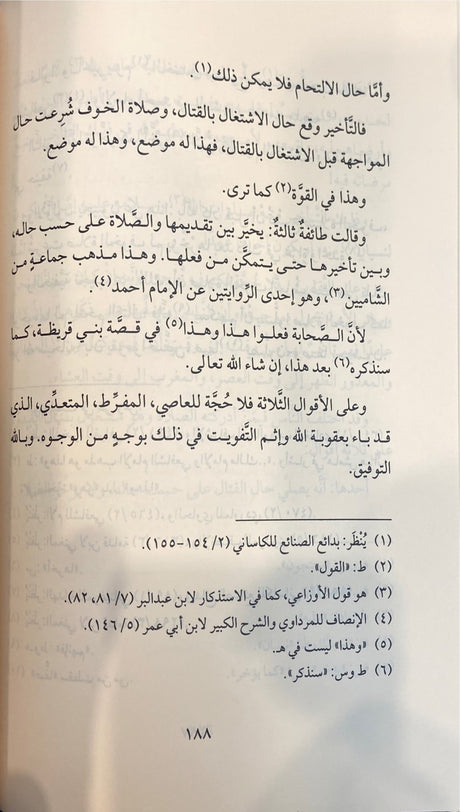 وأمَّا حال الالتحام فلا يمكن ذلك(١).
فالتَّأخير وقع حال الاشتغال بالقتال، وصلاة الخوف شُرِعت حال
المواجهة قبل الاشتغال بالقتال، فهذا له موضع، وهذا له موضع.
وهذا في القوَّة(٢) كما ترى.
وقالت طائفةٌ ثالثةٌ: يخيَّر بين تقديمها والصَّلاة على حسب حاله،
وبين تأخيرها حتى يتمكَّن من فعلها. وهذا مذهب جماعةٍ من
الشَّاميين(٣)، وهو إحدى الرِّوايتين عن الإمام أحمد(٤).
لأنَّ الصَّحابة فعلوا هذا وهذا(٥) في قصَّة بني قريظة، كما
سنذكره(٦) بعد هذا، إن شاء الله تعالى.
وعلى الأقوال الثَّلاثة فلا حُجَّة للعاصي، المفرِّط، المتعدِّي، الذي
قد باء بعقوبة الله وإثم التَّفويت في ذلك بوجهٍ من الوجوه. وبالله
التوفيق.
(١) يُنْظَر: بدائع الصنائع للكاساني (٢/ ١٥٤-١٥٥).
(٢) ط: «القول».
(٣) هو قول الأوزاعي، كما في الاستذكار لابن عبدالبر (٧/ ٨١، ٨٢).
(٤) الإنصاف للمرداوي والشرح الكبير لابن أبي عمر (٥/ ١٤٦).
(٥) «وهذا» ليست في هـ.
(٦) ط وس: «سنذكر».
١٨٨